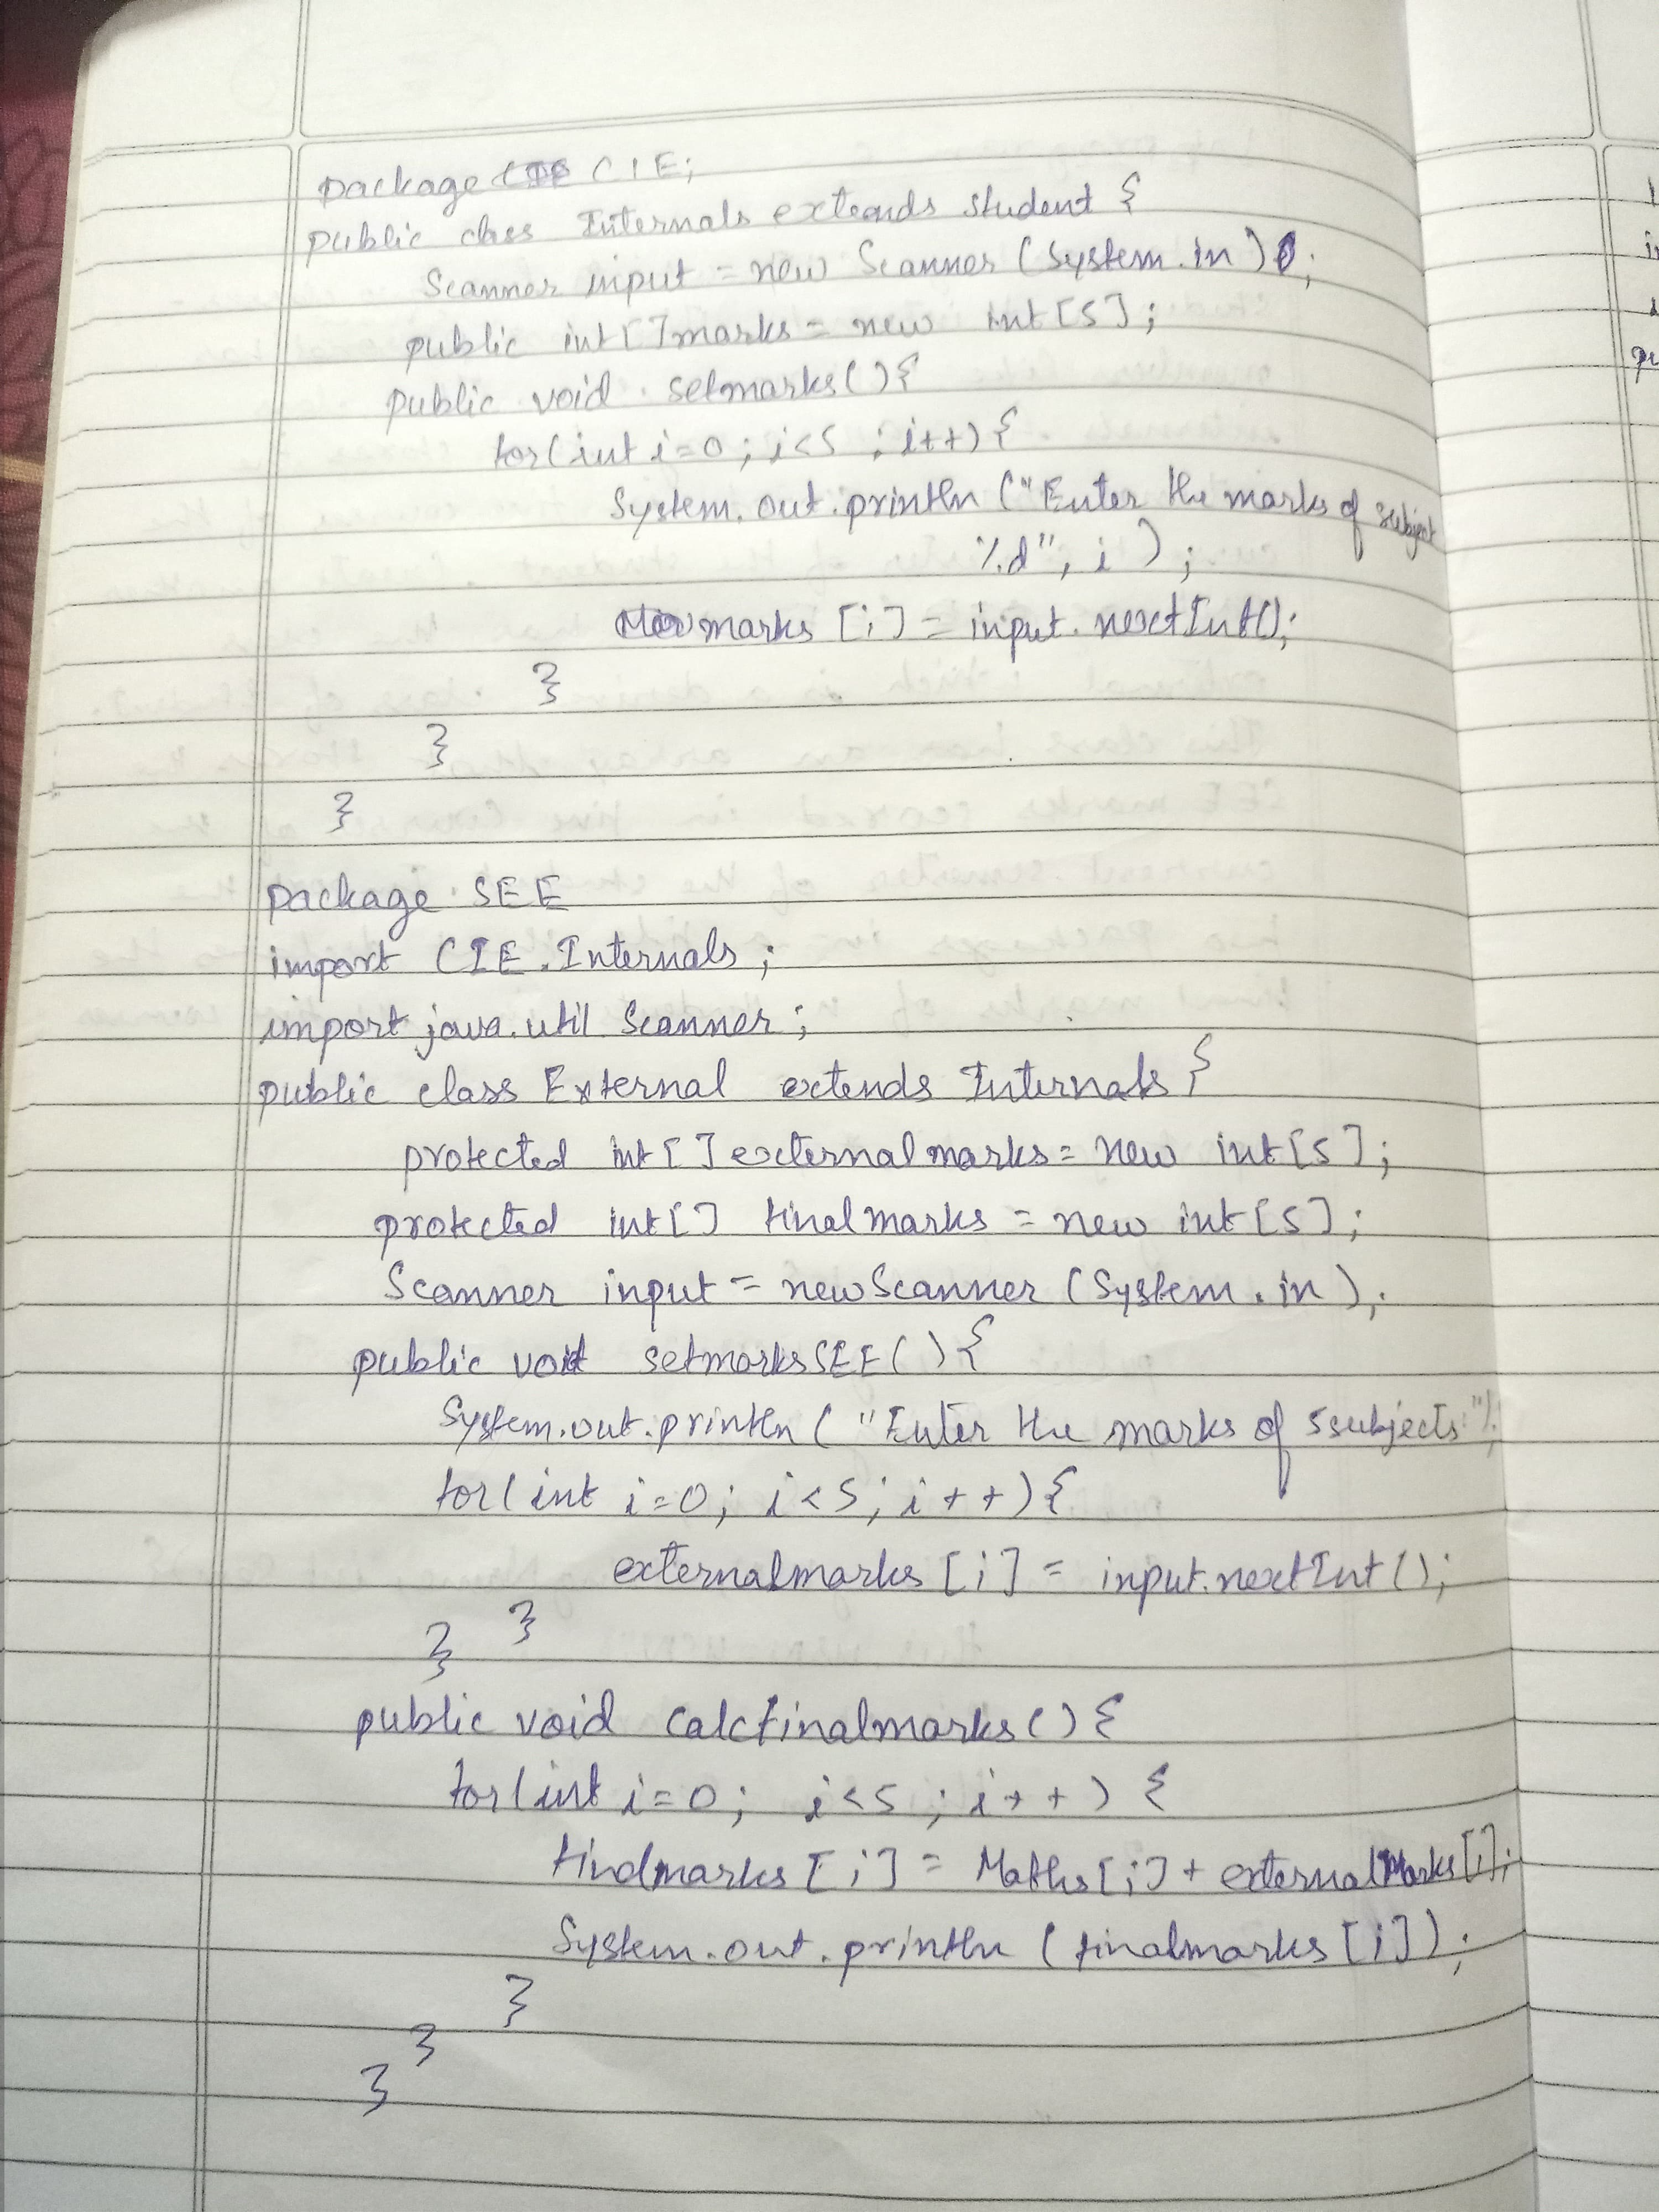 package CIE;
public class Internals extends student {
Scanner input = new Scanner (System.in);
public int[] marks = new int [5];
public void setmarks(){
for(int i=0; i<5; i++){
System.out.println ("Enter the marks of subject
%d", i );
marks [i] = input.nextInt();
}
}
}
package SEE
import CIE.Internals;
import java.util.Scanner;
public class External extends Internals {
protected int[] externalmarks = new int[5];
protected int[] finalmarks = new int[5];
Scanner input = new Scanner (System.in);
public void setmarksSEE(){
System.out.println ("Enter the marks of 5subjects:");
for(int i=0; i<5; i++){
externalmarks [i] = input.nextInt();
} }
public void calcfinalmarks(){
for(int i=0; i<5; i++) {
finalmarks [i] = Maths[i] + externalMarks[i];
System.out.println (finalmarks [i]);
}
}
}